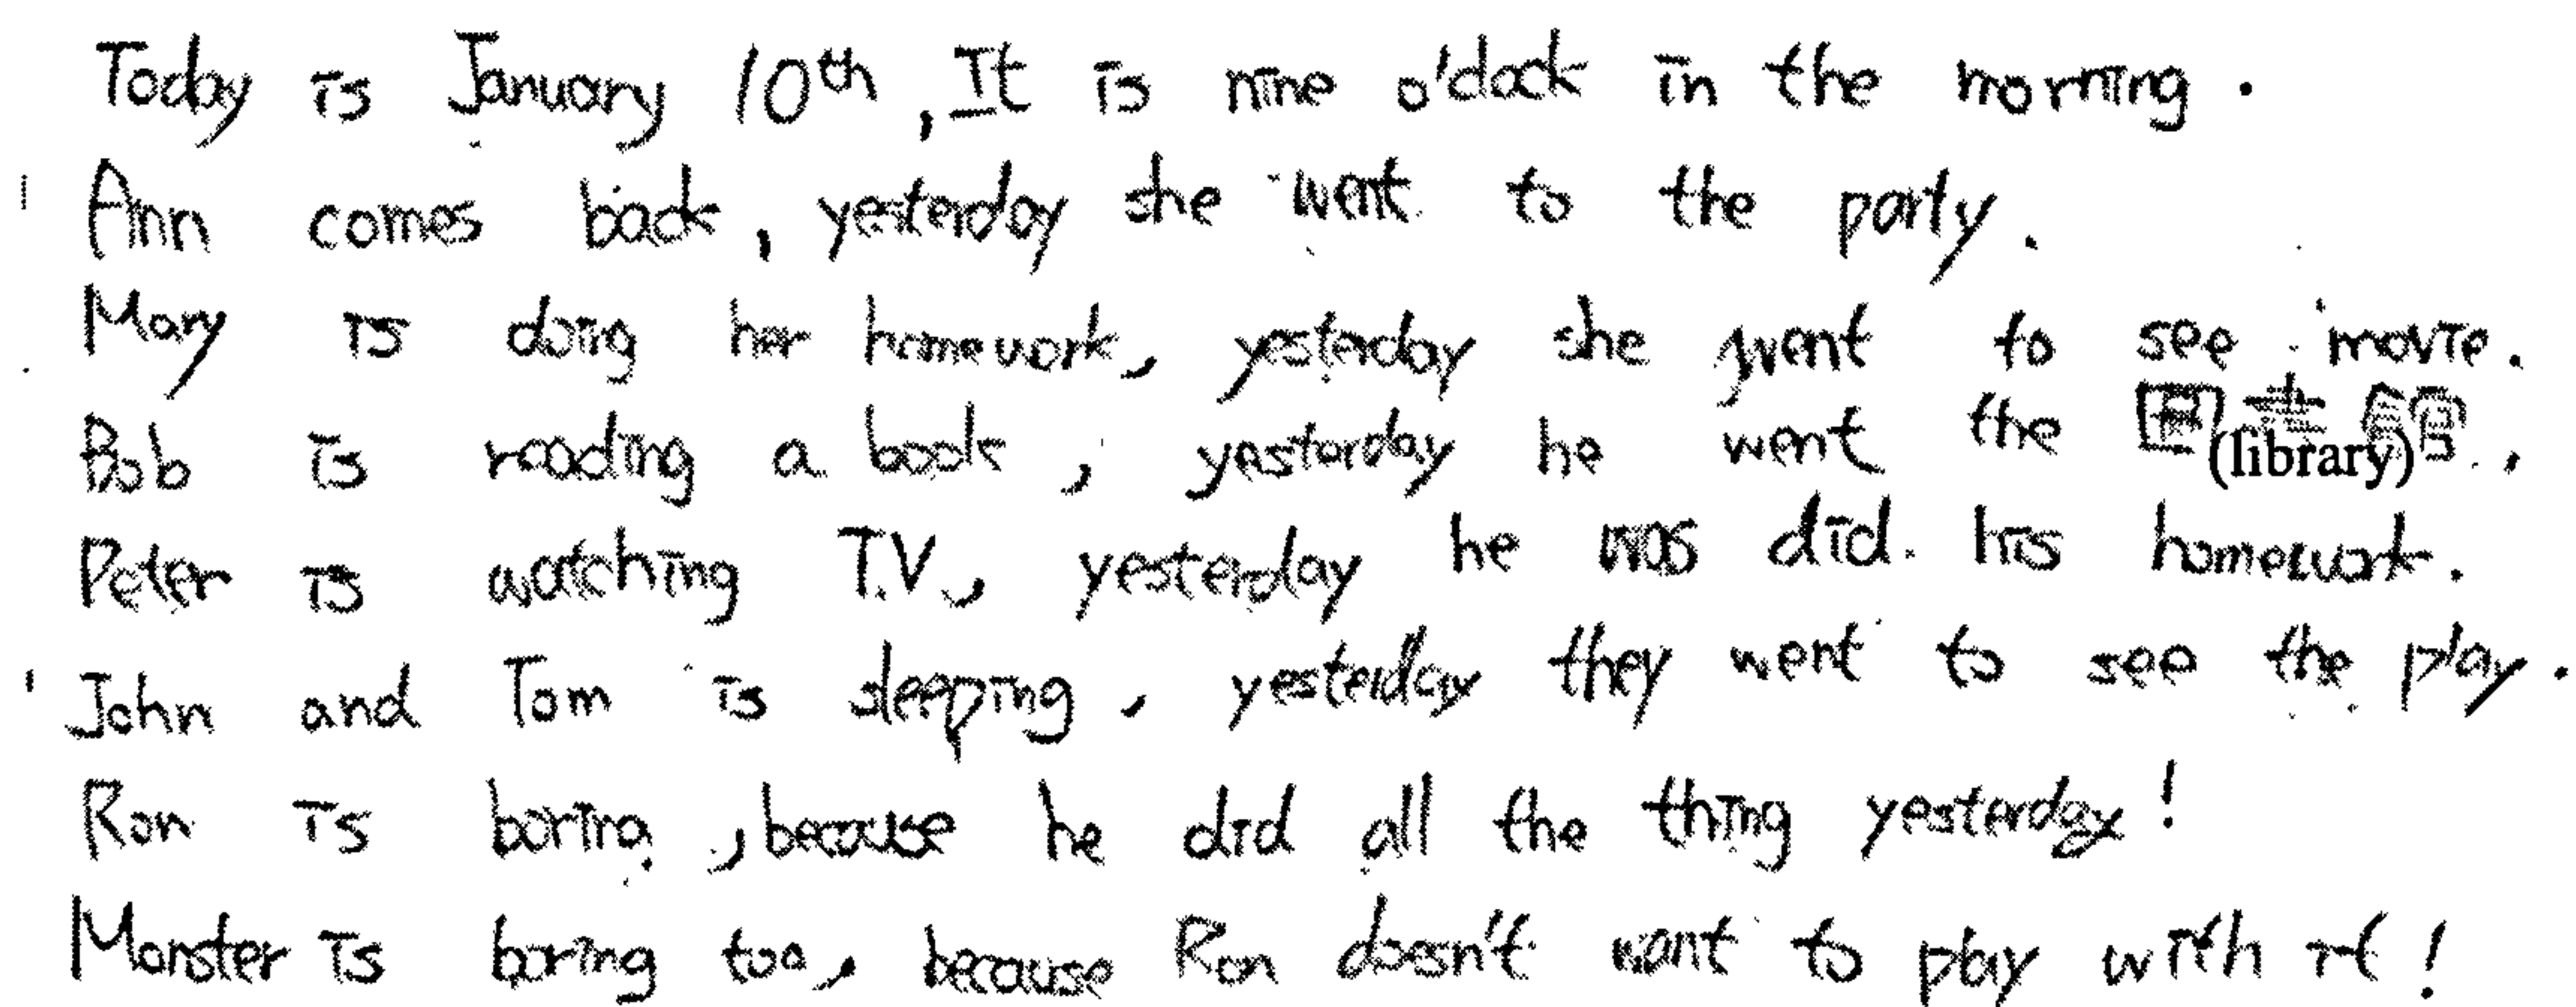 Today is January 10th, It is nine o'clock in the morning.
Ann comes back, yesterday she went to the party.
Mary is doing her homework, yesterday she went to see movie.
Bob is reading a book, yesterday he went the 図書館 (library).,
Peter is watching T.V., yesterday he was did his homework.
John and Tom is sleeping, yesterday they went to see the play.
Ron is boring, because he did all the thing yesterday!
Monster is boring too, because Ron doesn't want to play with it!